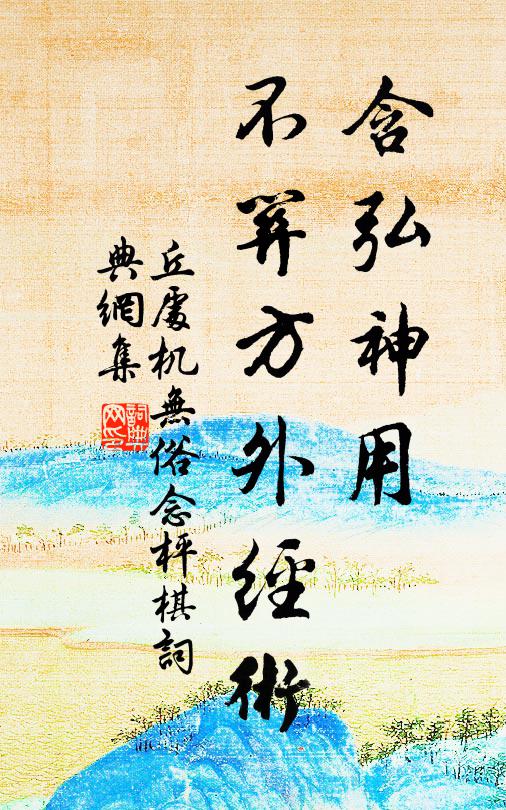 含弘神用
不筭方外經術
丘處机無俗念枰棋詞
典網集
詞典網印